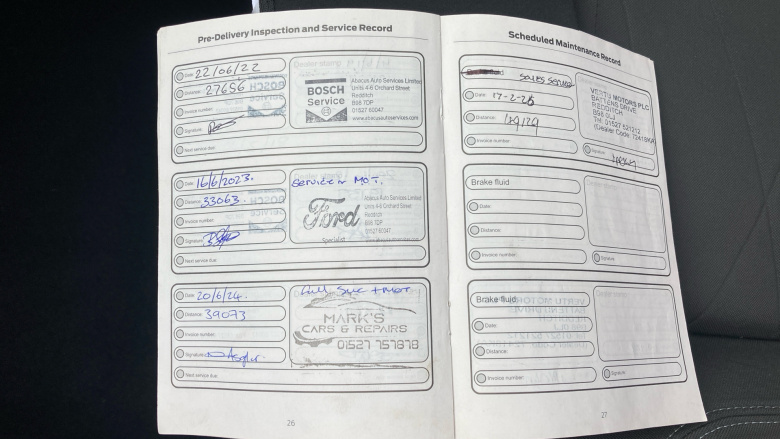 Pre-Delivery Inspection and Service Record
Date: 22/06/22
Distance: 27656
Invoice number:
Signature:
Next service due:
BOSCH
Service
Abacus Auto Services Limited
Units 4-6 Orchard Street
Redditch
B98 7DP
01527 60047
www.abacusautoservices.com
Date: 16/6/2023.
Distance: 33063.
Invoice number:
Signature:
Next service due:
Service + MOT.
Ford
Specialist
Abacus Auto Services Limited
Units 4-6 Orchard Street
Redditch
B98 7DP
01527 60047
www.abacusautoservices.com
Date: 20/6/24.
Distance: 39073
Invoice number:
Signature:
Next service due:
Full Svc + MOT
MARK'S
CARS & REPAIRS
01527 757878
26
Scheduled Maintenance Record
Sales Service
Date: 17-2-26
Distance:
Invoice number:
VERTU MOTORS PLC
BATTENS DRIVE
REDDITCH
B98 0LJ
Tel: 01527 521212
(Dealer Code: 72415KA)
Signature:
Brake fluid
Date:
Distance:
Invoice number:
Signature:
Brake fluid
Date:
Distance:
Invoice number:
Signature:
27